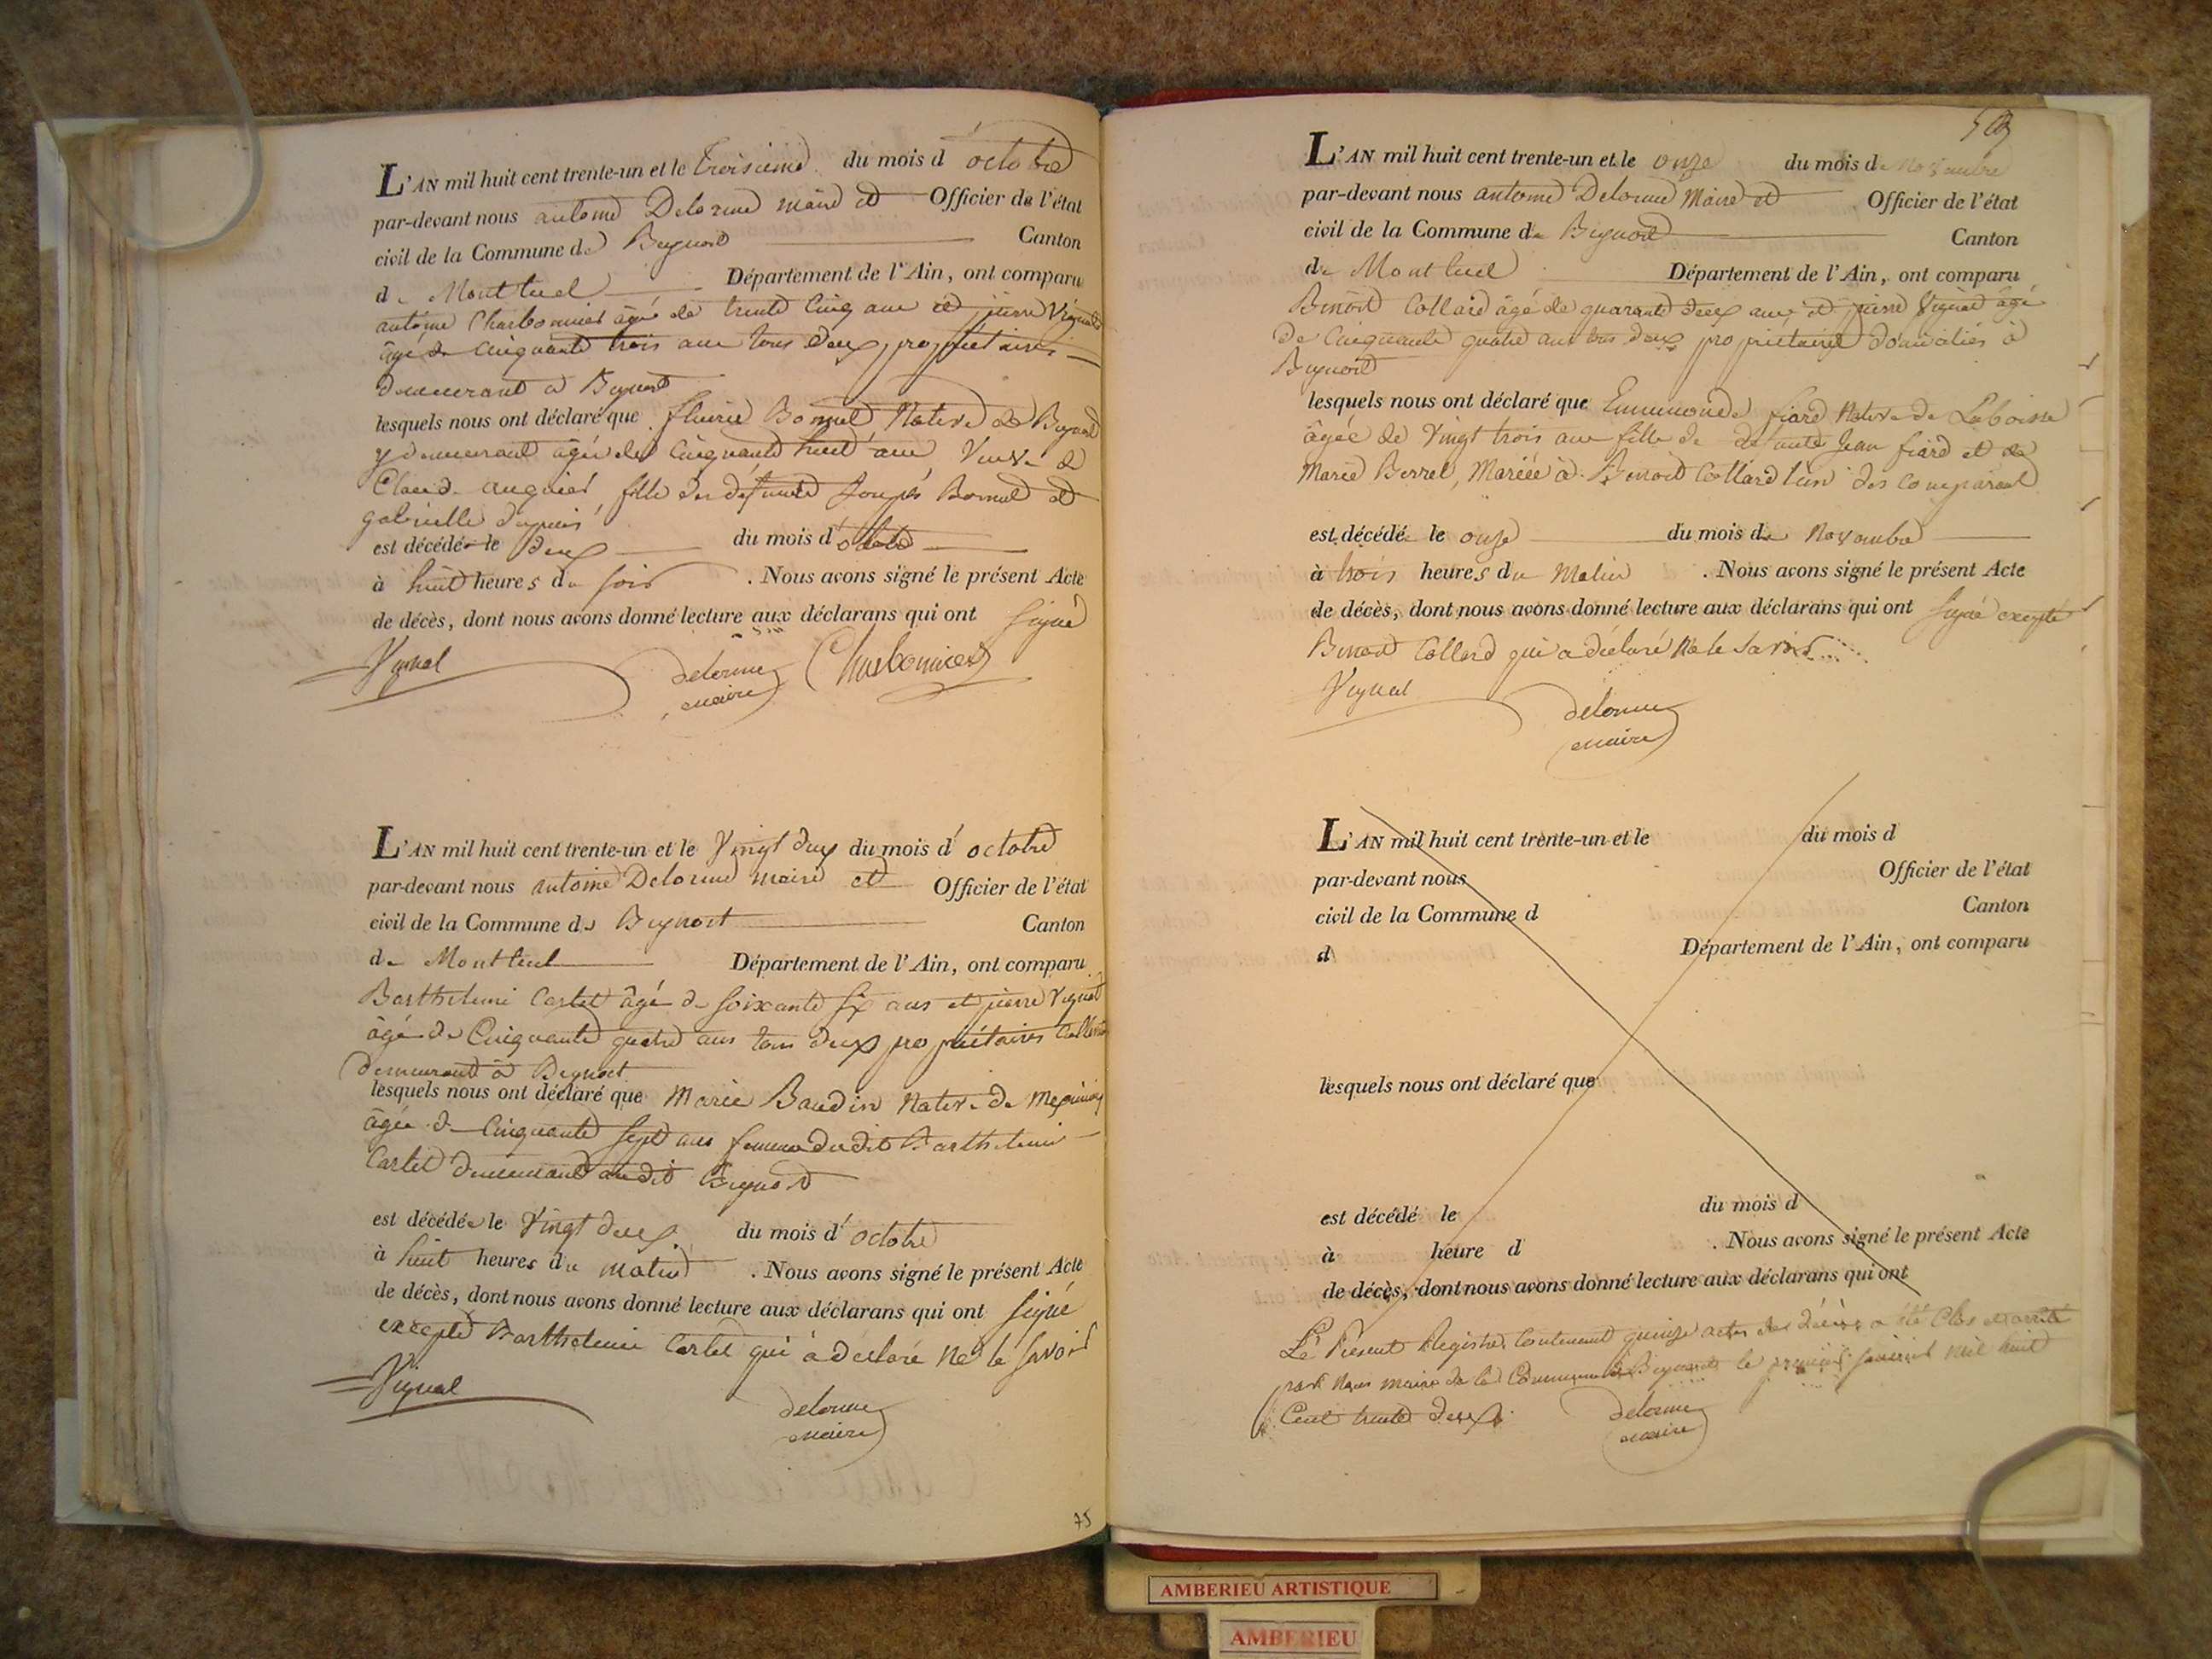 L'AN mil huit cent trente-un et le troisieme du mois d'octobre
par-devant nous antoine Delorme maire et Officier de l'état
civil de la Commune de Beynost Canton
de Montluel Département de l'Ain, ont comparu
antoine Charbonnier âgé de trente cinq ans et pierre Vignal
âgé de cinquante trois ans tous deux propriétaires
demeurant à Beynost
lesquels nous ont déclaré que fleurie Bonnel Native de Beynost
y demeurant âgée de cinquante huit ans Veuve de
Claude augier fille des défunts Bonnel et
gabrielle
est décédée le deux du mois d'octobre
à huit heures du soir . Nous avons signé le présent Acte
de décès, dont nous avons donné lecture aux déclarans qui ont signé
Vignal delorme maire Charbonnier
L'AN mil huit cent trente-un et le Vingt deux du mois d'octobre
par-devant nous antoine Delorme maire et Officier de l'état
civil de la Commune de Beynost Canton
de Montluel Département de l'Ain, ont comparu
Barthelemi Cartet âgé de soixante six ans et pierre Vignal
âgé de Cinquante quatre ans tous deux propriétaires
demeurant à Beynost
lesquels nous ont déclaré que Marie Baudin Native de Meximieux
âgée de Cinquante sept ans femme dudit Barthelemi
Cartet demeurant audit Beynost
est décédée le Vingt deux du mois d'octobre
à huit heures du matin . Nous avons signé le présent Acte
de décès, dont nous avons donné lecture aux déclarans qui ont signé
excepté Barthelemi Cartet qui à déclaré ne le savoir
Vignal delorme
maire
75
L'AN mil huit cent trente-un et le onze du mois de Novembre
par-devant nous antoine Delorme Maire et Officier de l'état
civil de la Commune de Beynost Canton
de Montluel Département de l'Ain, ont comparu
Benoit Collard âgé de quarante deux ans et pierre Vignal âgé
de Cinquante quatre ans tous deux propriétaires domiciliés à
Beynost
lesquels nous ont déclaré que Ennemonde fiard Native de Laboisse
âgée de Vingt trois ans fille de defunts Jean fiard et de
Marie Berret, Mariée à Benoit Collard l'un des comparant
est décédée le onze du mois de Novembre
à trois heures du Matin . Nous avons signé le présent Acte
de décès, dont nous avons donné lecture aux déclarans qui ont signé excepté
Benoit Collard qui a déclaré Ne le savoir
Vignal delorme
maire
L'AN mil huit cent trente-un et le du mois d
par-devant nous Officier de l'état
civil de la Commune d Canton
d Département de l'Ain, ont comparu
lesquels nous ont déclaré que
est décédé le du mois d
à heure d . Nous avons signé le présent Acte
de décès, dont nous avons donné lecture aux déclarans qui ont
Le Present Registre Contenant quinze actes de décès a été Clos et arrêté
par Nous maire de la Commune de Beynost le premier janvier mil huit
Cent trente deux delorme
maire
AMBERIEU ARTISTIQUE
AMBERIEU